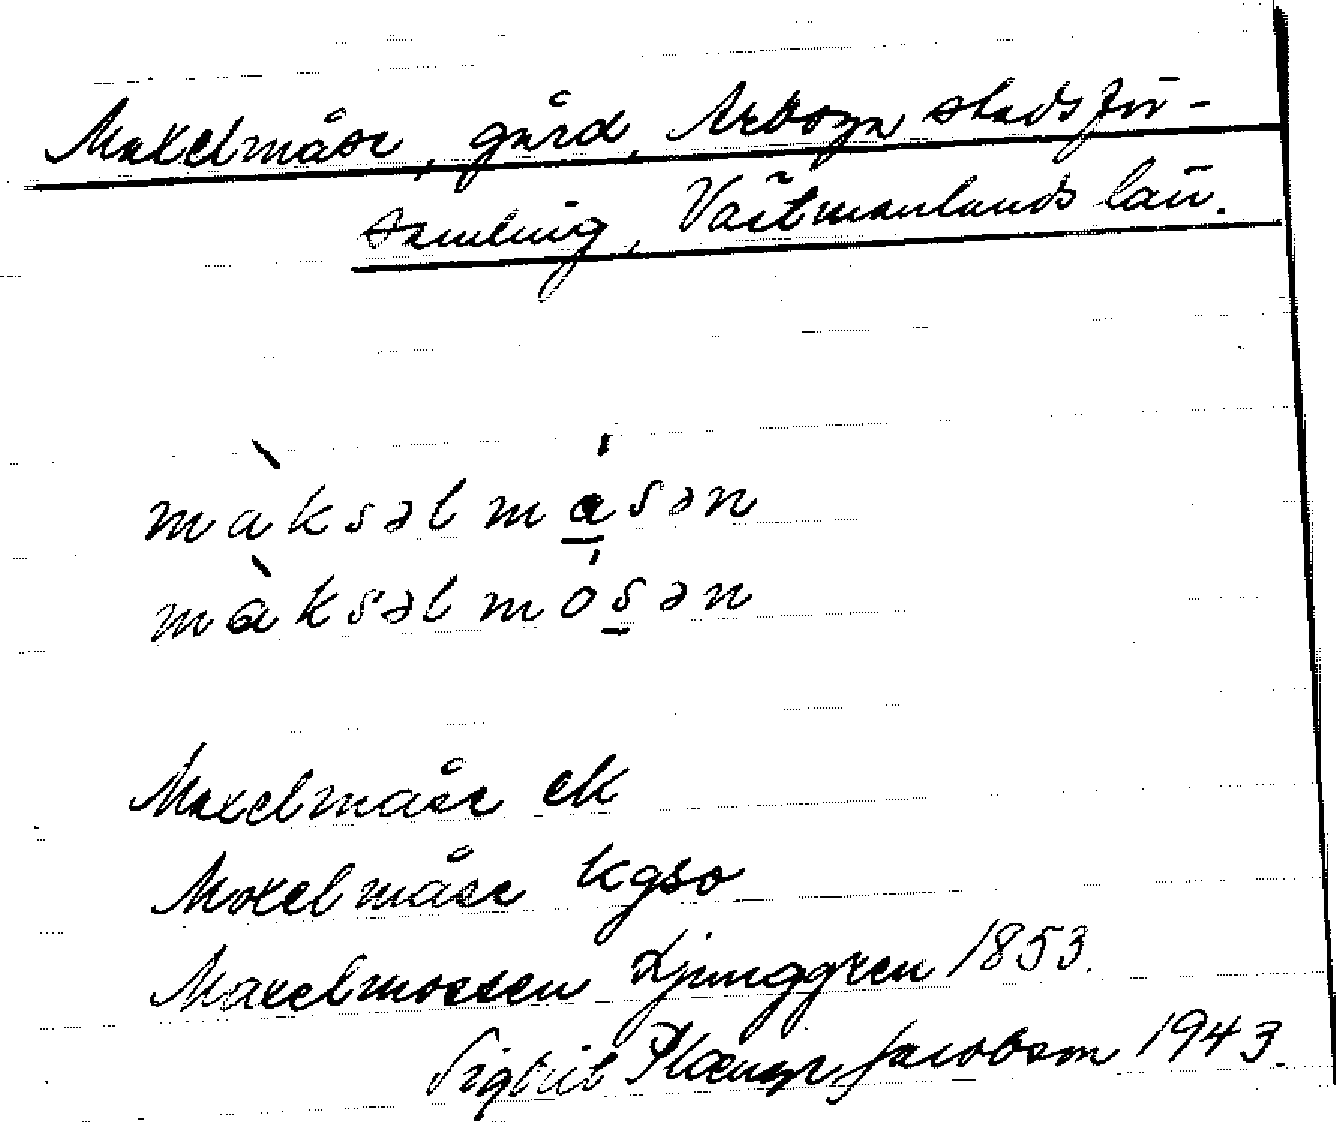 Maxelmåse, gård, Arboga stadsför-
samling, Västmanlands län.
màksəlmásən
màksəlmósən
Maxelmåse ek
Maxelmåse kgso
Maxelmossen Ljunggren 1853.
Sigbrit Plænge Jacobson 1943.